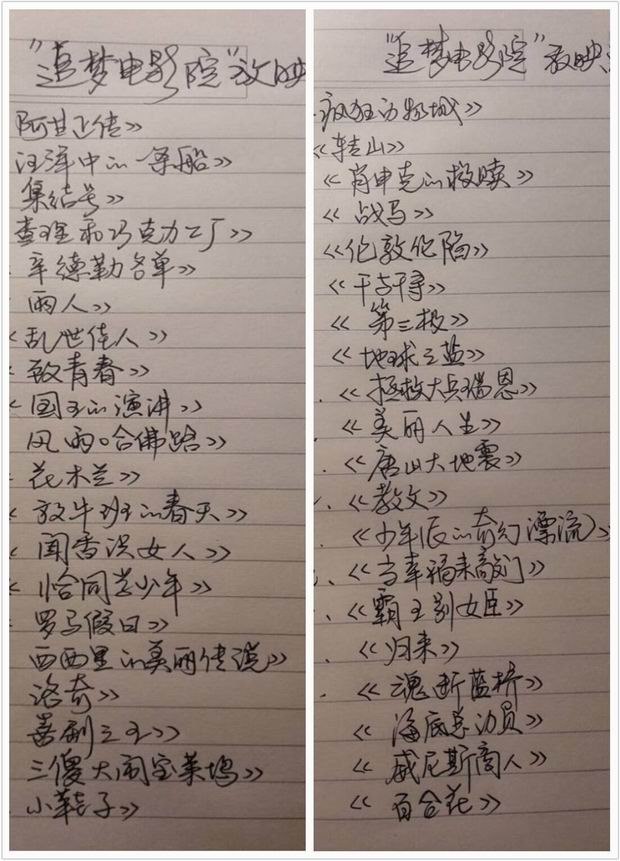 "追梦电影院"放映
阿甘正传》
汪洋中的一条船》
集结号》
查理和巧克力工厂》
辛德勒名单》
雨人》
《乱世佳人》
致青春》
《国王的演讲》
风雨哈佛路》
《花木兰》
《放牛班的春天》
《闻香识女人》
《恰同学少年》
罗马假日》
西西里的美丽传说》
洛奇》
喜剧之王》
三傻大闹宝莱坞》
小鞋子》
"追梦电影院"放映
疯狂动物城》
《转山》
《肖申克的救赎》
《战马》
《伦敦伦陷》
《第三极》
《地球之盐》
《拯救大兵瑞恩》
《美丽人生》
《唐山大地震》
《教父》
《少年派的奇幻漂流》
《当幸福来敲门》
《霸王别姬》
《归来》
《魂断蓝桥》
《海底总动员》
《威尼斯商人》
《百合花》